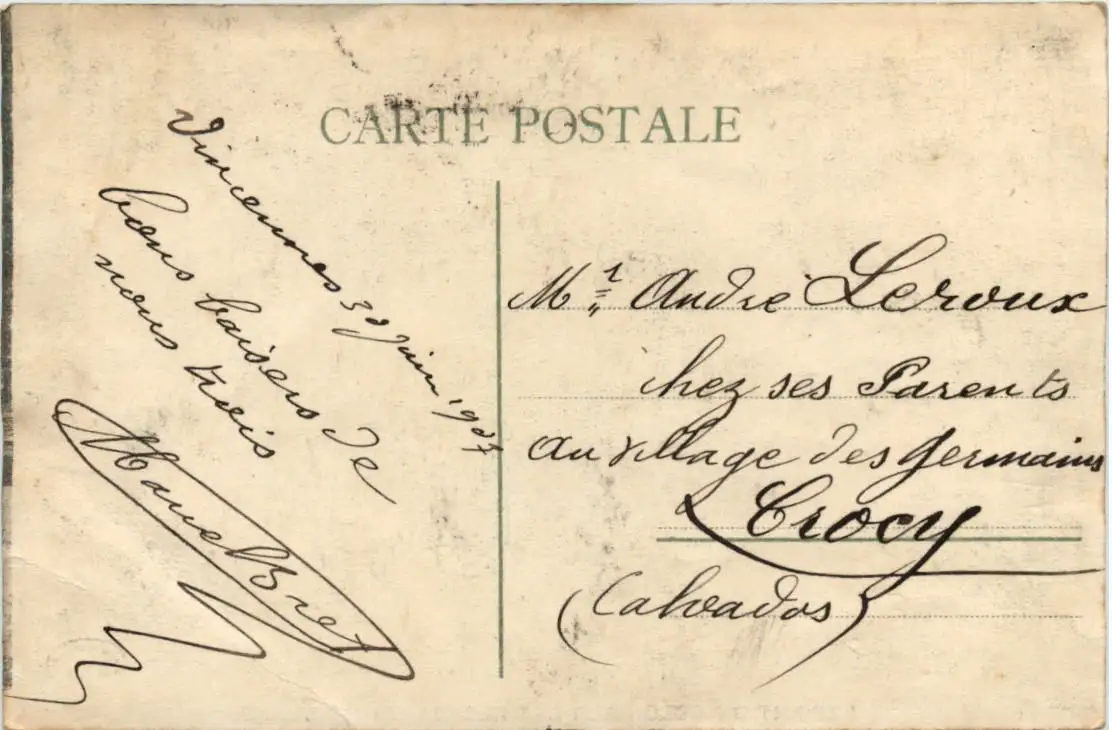 CARTE POSTALE
Vincennes 30 Juin 1907
bons baisers de
nous trois
Bret
Mr André Leroux
chez ses Parents
au village des Germains
Crocy
(Calvados)